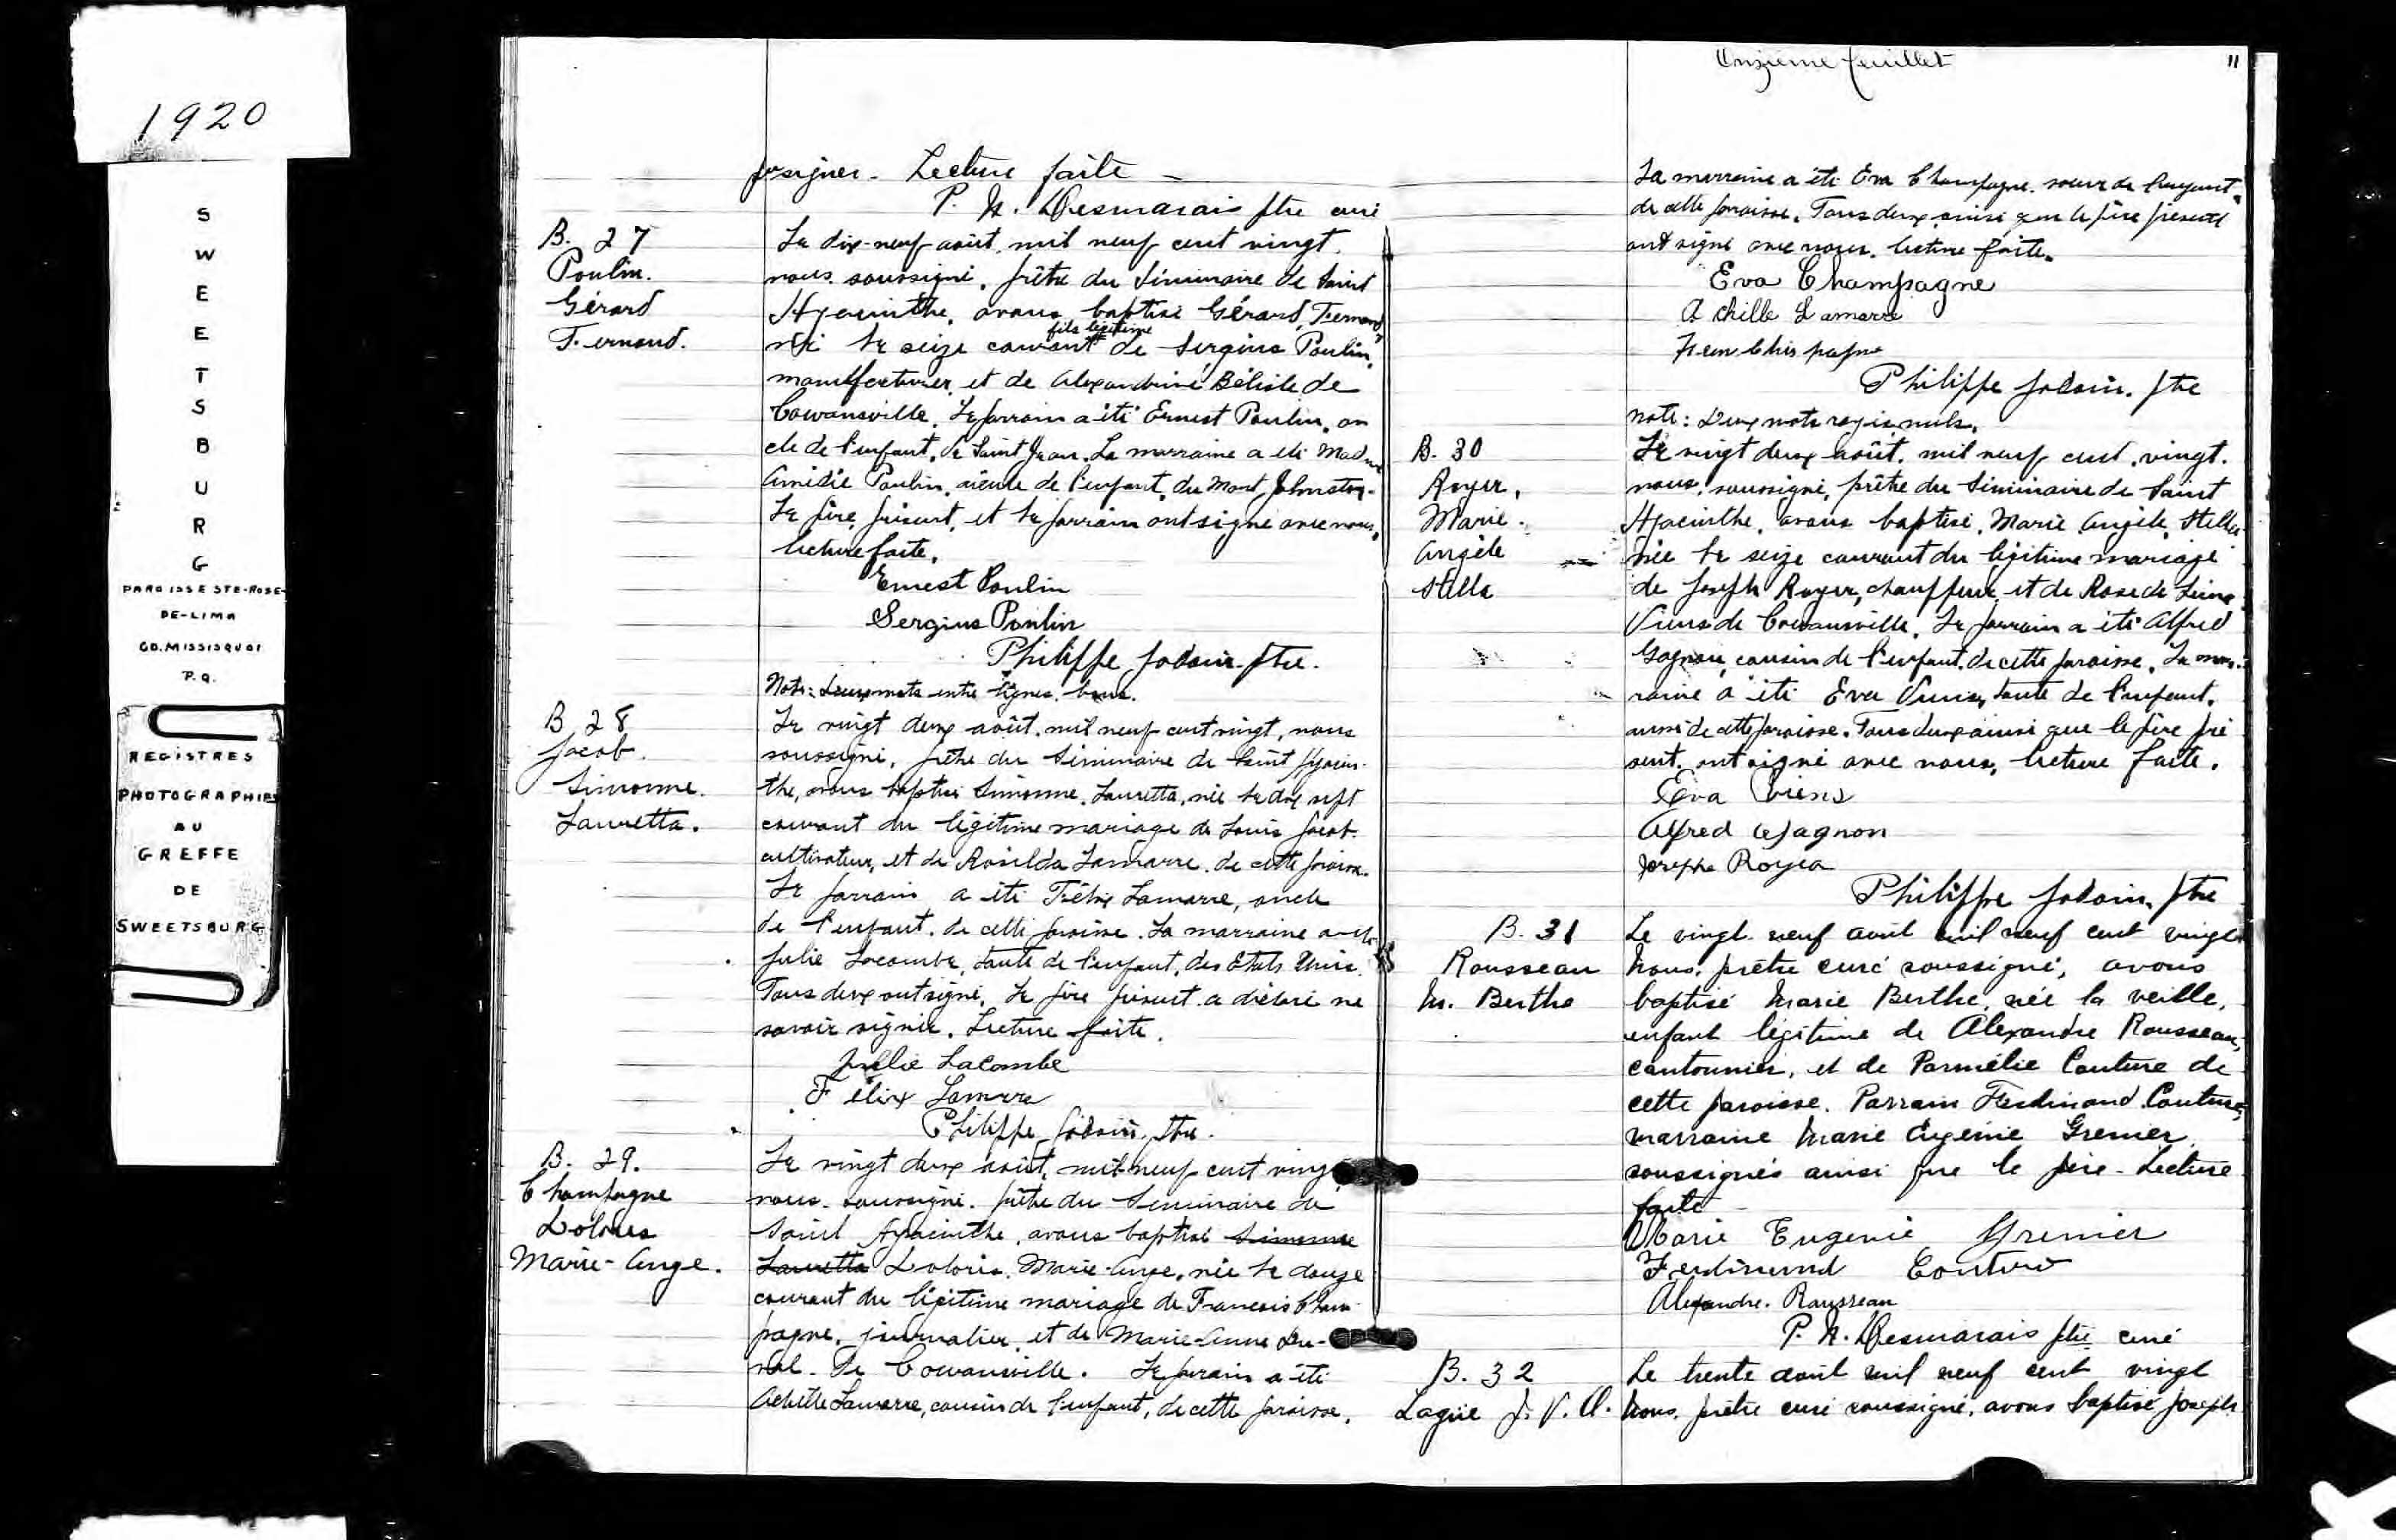 1920
SWEETSBURG
PAROISSE STE-ROSE-
DE-LIMA
CO. MISSISQUOI
P.Q.
REGISTRES
PHOTOGRAPHIES
AU
GREFFE
DE
SWEETSBURG
signer - Lecture faite -
P. N. Desmarais ptre curé
B. 27
Poulin.
Gérard
Fernand.
Le dix-neuf août, mil neuf cent vingt,
nous soussigné, prêtre du Séminaire de Saint
Hyacinthe, avons baptisé Gérard, Fernand,
fils légitime
né le seize courant de Sergius Poulin,
manufacturier et de Alexandrine Bélisle de
Cowansville. Le parrain a été Ernest Poulin, on
cle de l'enfant, de Saint Jean. La marraine a été Madme
Amédée Poulin, aïeule de l'enfant, du Mont Johnston.
Le père, présent, et le parrain ont signé avec nous,
lecture faite.
Ernest Poulin
Sergius Poulin
Philippe Jodoin. ptre.
Note: Deux mots entre lignes. bons.
B 28
Jacob.
Simonne.
Lauretta.
Le vingt deux août, mil neuf cent vingt, nous
soussigné, prêtre du Séminaire de Saint Hyacin-
the, avons baptisé Simonne, Lauretta, née le dix sept
courant du légitime mariage de Louis Jacob.
cultivateur, et de Rosilda Lamarre de cette paroisse.
Le parrain a été Félix Lamarre, oncle
de l'enfant. de cette paroisse. La marraine a été
Julie Lacombe, tante de l'enfant, des Etats Unis.
Tous deux ont signé. Le père présent a déclaré ne
savoir signer. Lecture faite.
Julie Lacombe
Félix Lamarre
Philippe Jodoin, ptre.
B. 29.
Champagne
Dolorès
Marie-Ange.
Le vingt deux août, mil neuf cent vingt
nous. soussigné. prêtre du Séminaire de
Saint Hyacinthe, avons baptisé Simonne
Lauretta Dolorès. Marie-Ange, née le douze
courant du légitime mariage de François Cham-
pagne, journalier, et de Marie-Anne
de Cowansville. Le parrain a été
Achille Lamarre, cousin de l'enfant, de cette paroisse.
Onzième feuillet
11
La marraine a été Eva Champagne. soeur de l'enfant,
de cette paroisse. Tous deux ainsi que le père présent
ont signé avec nous. lecture faite.
Eva Champagne
Achille Lamarre
Philippe Jodoin. ptre
Note: Deux mots rayés nuls.
B. 30
Royer,
Marie.
Angèle
Stella
Le vingt deux août. mil neuf cent vingt.
nous, soussigné, prêtre du Séminaire de Saint
Hyacinthe, avons baptisé, Marie Angèle, Stella
née le seize courant du légitime mariage
de Joseph Royer, chauffeur, et de Rose de Lima
Viens de Cowansville. Le parrain a été Alfred
Gagnon, cousin de l'enfant, de cette paroisse. La mar-
raine a été Eva Viens, tante de l'enfant.
aussi de cette paroisse. Tous deux ainsi que le père pré
sent, ont signé avec nous, lecture faite.
Eva Viens
Alfred Gagnon
Joseph Royer
Philippe Jodoin, ptre
B. 31
Rousseau
M. Berthe
Le vingt-neuf août mil neuf cent vingt
Nous, prêtre curé soussigné, avons
baptisé Marie Berthe, née la veille,
enfant légitime de Alexandre Rousseau,
cantonnier, et de Parmélie Couture de
cette paroisse. Parrain Ferdinand Couture,
marraine Marie Eugénie Grenier
soussignés ainsi que le père - Lecture
faite -
Marie Eugenie Grenier
Ferdinand Couture
Alexandre. Rousseau
P. N. Desmarais ptre curé
B. 32
Lague J. V. A.
Le trente août mil neuf cent vingt
Nous, prêtre curé soussigné, avons baptisé Joseph